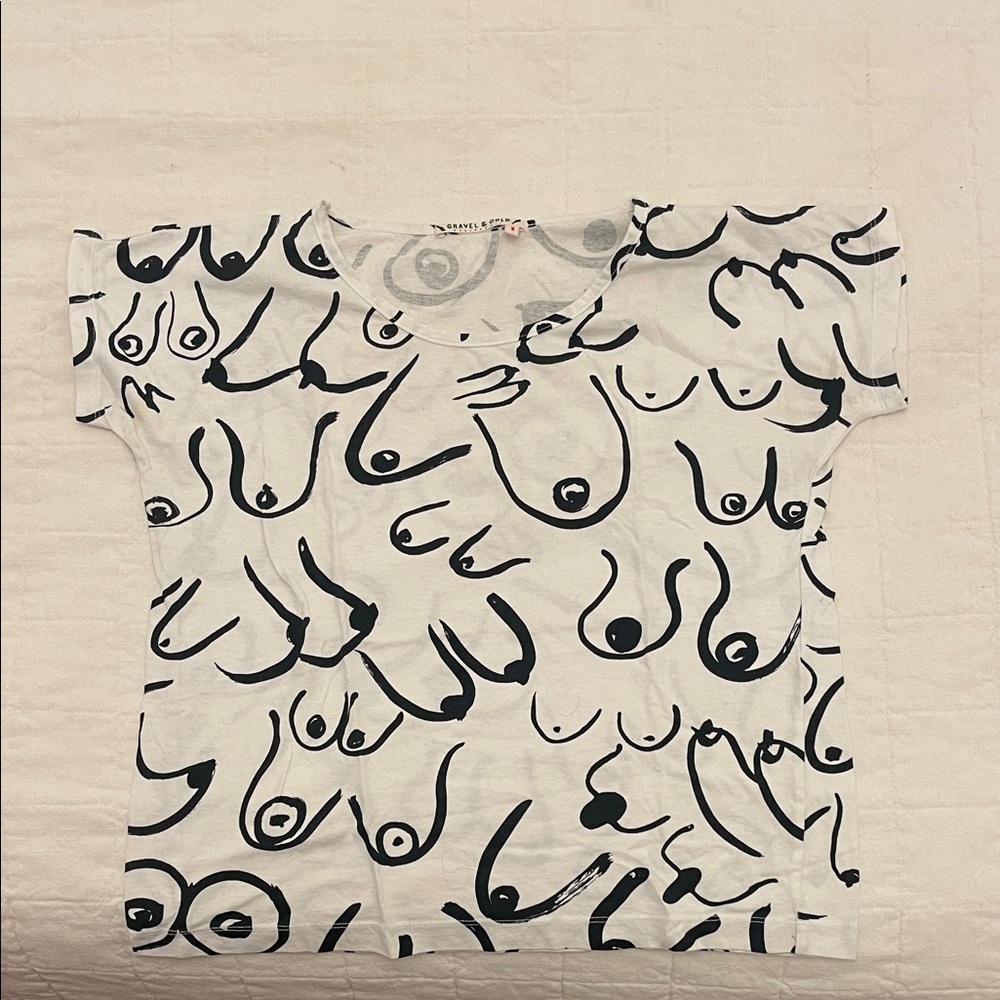 GRAVEL & GOLD